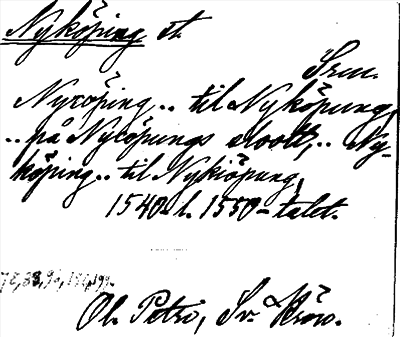 Nyköping st.
Srm.
Nycöping.. til Nyköpung,
.. på Nycöpungs slott,.. Ny-
köping.. til Nykiöpung,
1540- l. 1550-talet.
Ol. Petri, Sv. Krön.